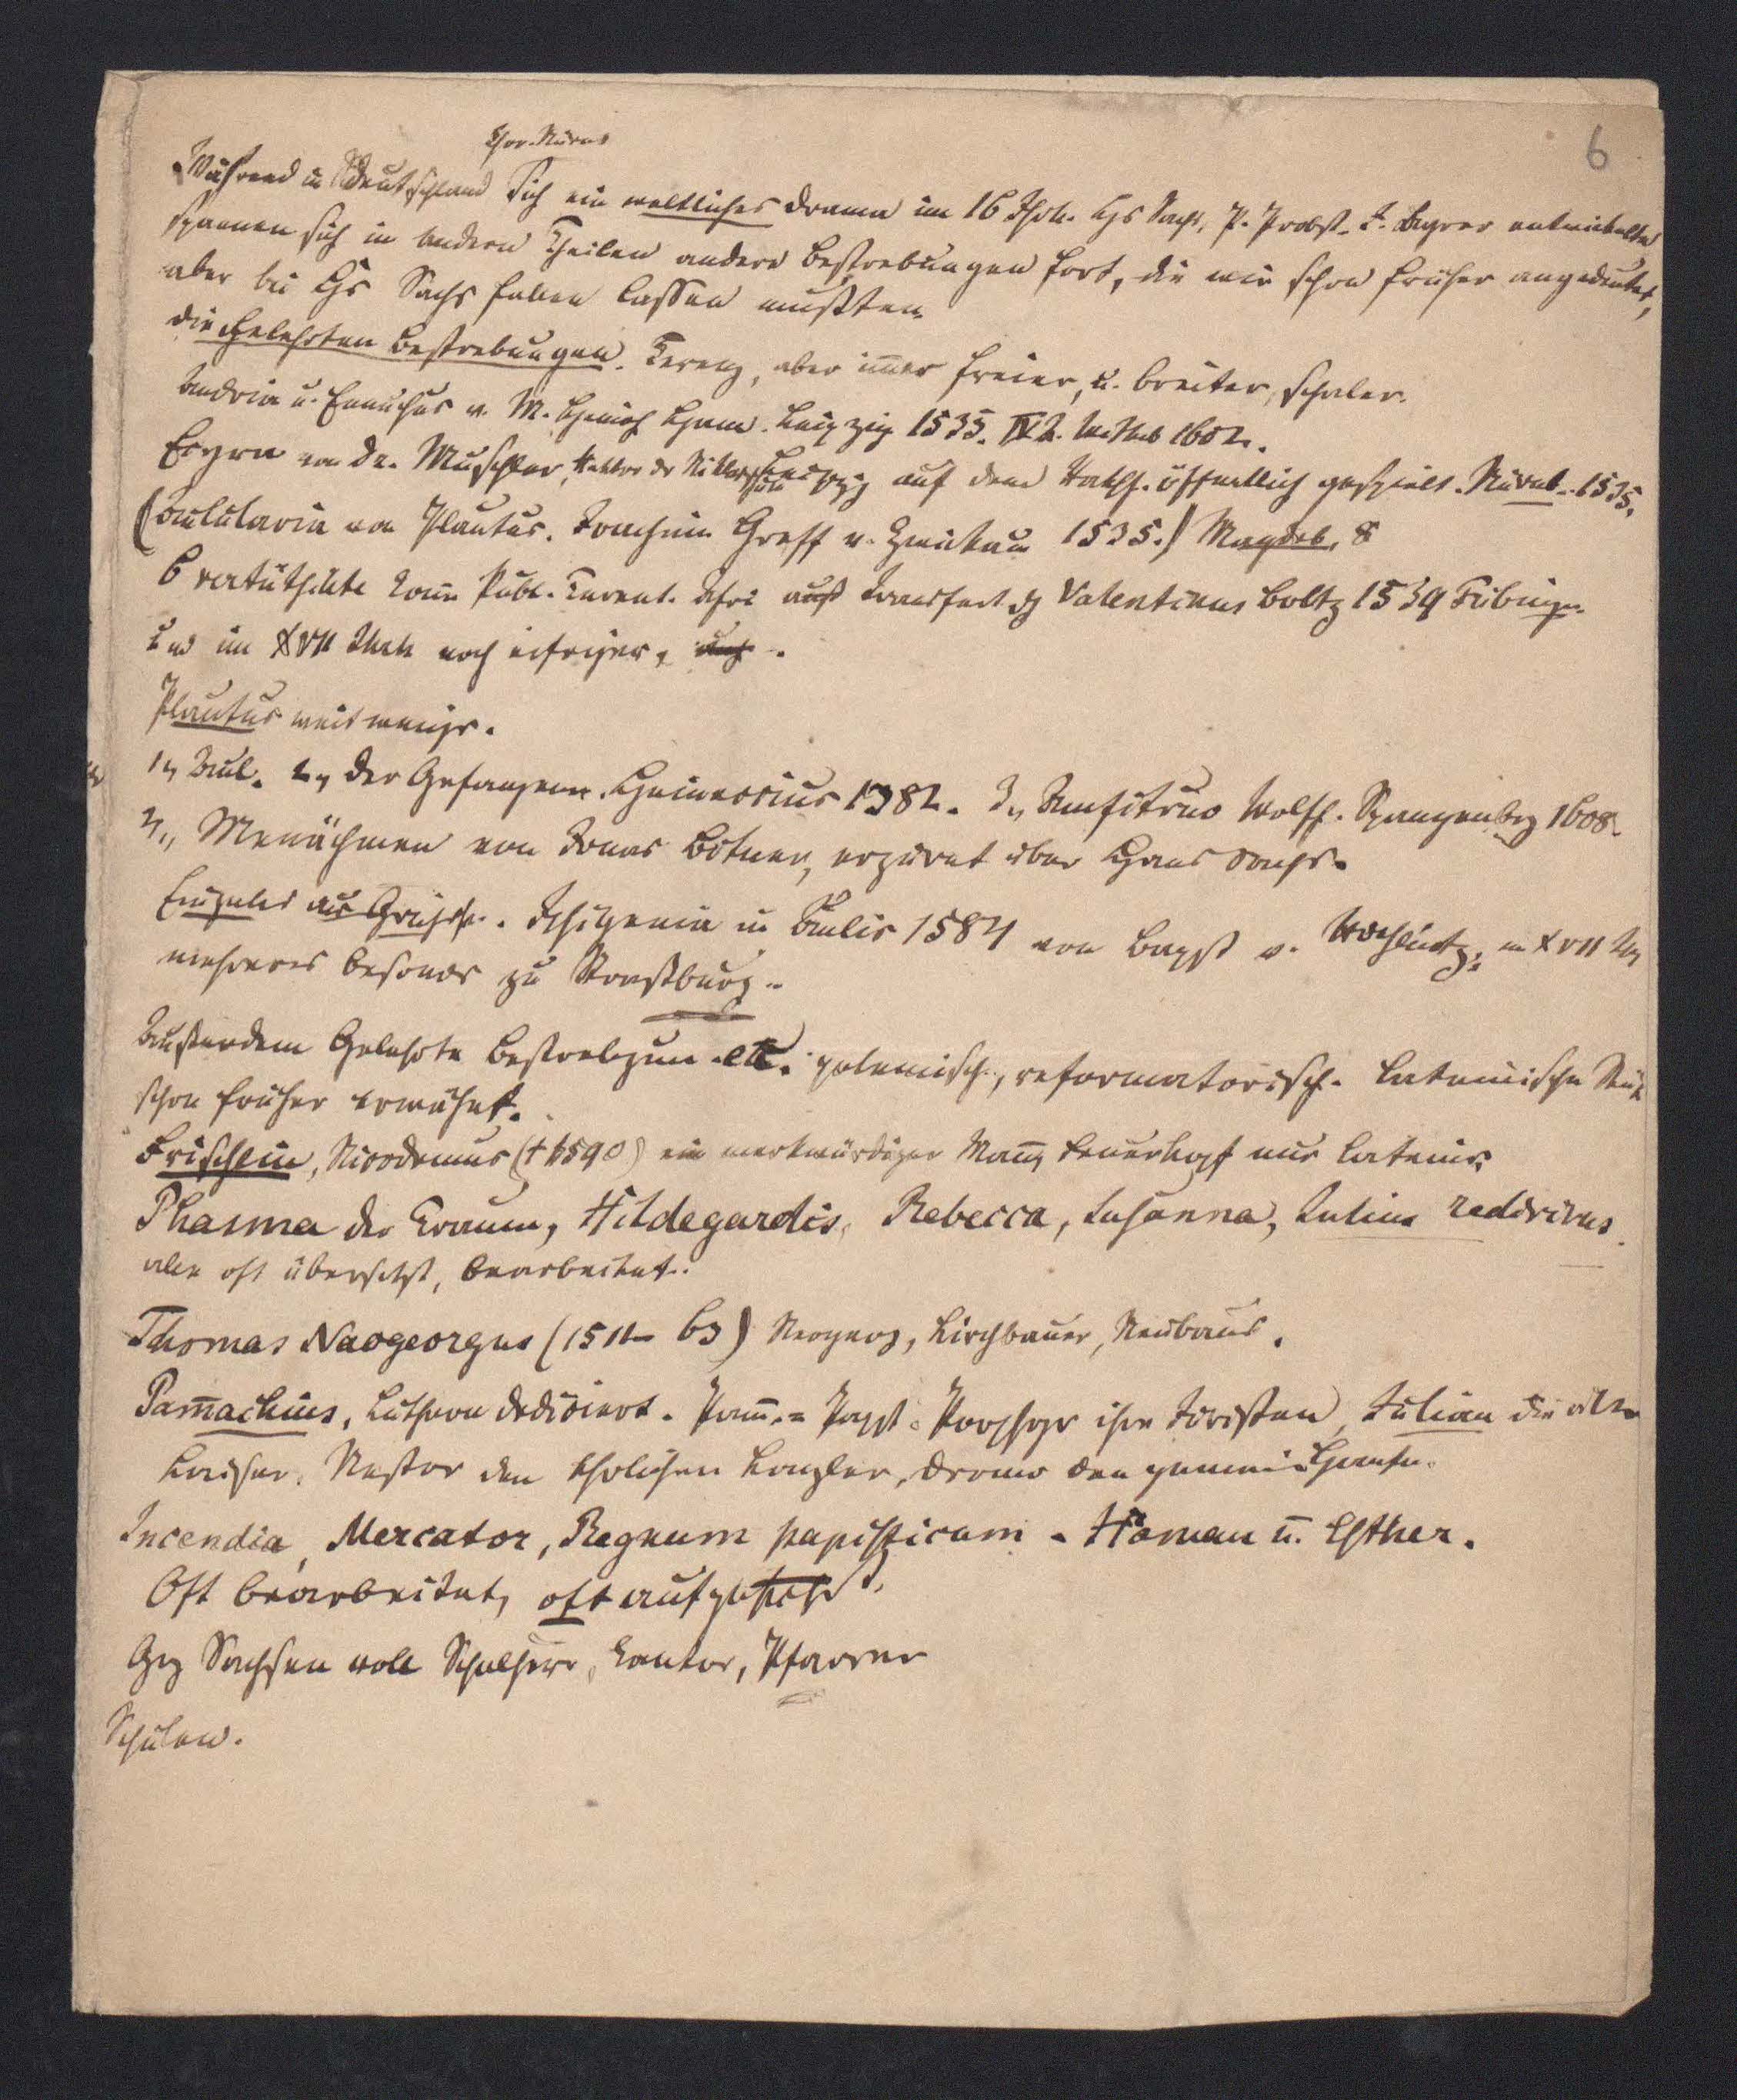 6
Während in Deutschland sich ein weltliches Drama im 16 Jhrh. Hs Sachs, P. Probst. J. Ayrer entwickelte
spannen sich in andern Theilen andere Bestrebungen fort, die wir schon früher angedeutet,
aber bei Hs Sachs fallen lassen mußten.
die gelehrten Bestrebungen. Terenz, aber im̄er freier, u. breiter,
Andria u. Eunuchus v. M. Heinrich Ham. Leipzig 1535. 1602.
Hecyra von Dr. Muschler, Rektor der auf dem Rathh. öffentlich gespielt. Nürnb. 1535.
(Aulularia von Plautus. Joachim Greff v. Zwickau 1535.) Magdeb. 8
6 verteutschte Publ. Terent. Afri auß Valentinus Boltz 1539 Tübingen
und im XVII noch eifriger,
Plautus weit weniger.
1, Aul. 2, der Gefangene. 1582. 3, Amfitruo Wolfh. Spangenberg 1608.
4, Menächmen von Jonas Bitner, über Hans Sachs.
Einzelnes aus Griech. Iphigenia in Aulis 1584 von Bapst v. Rochlitz, im XVII
mehreres besonders zu Straßburg.
Außerdem Gelehrte Bestrebungen etc. polemisch, reformatorisch. lateinische
schon früher erwähnt.
Frischlin, Nicodemus († 1590) ein merkwürdiger Man̄ nur lateinisch
Phasma der Traum, Hildegardis, Rebecca, Susanna, Julius redivivus.
aber oft übersetzt, bearbeitet.
Thomas Naogeorgus (1511– 63) Neogeorg, Kirchbauer, Neubauer.
Pam̄achius, Luthern dediciert. Pam̄. = Papst. Porphyr ihre Juristen, Julian die alten
Kaiser. Nestor den ehrlichen Kanzler, Dromo den gemeinen
Incendia, Mercator, Regnum papisticum. Haman u. Esther.
Oft bearbeitet, oft aufgeführt.
Sachsen voll Schulherr, Cantor, Pfarrer
Schulen.